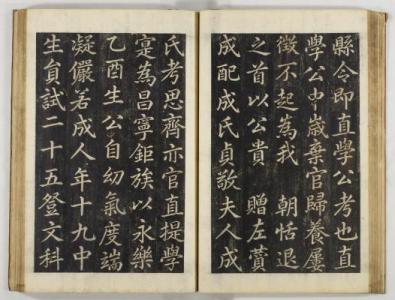 縣令即直學公考也直
學公中歲棄官歸養屢
徵不起為我 朝恬退
之首以公貴 贈左贊
成配成氏貞敬夫人成
氏考思齊亦官直提學
寔為昌寧鉅族以永樂
乙酉生公自幼氣度端
凝儼若成人年十九中
生員試二十五登文科